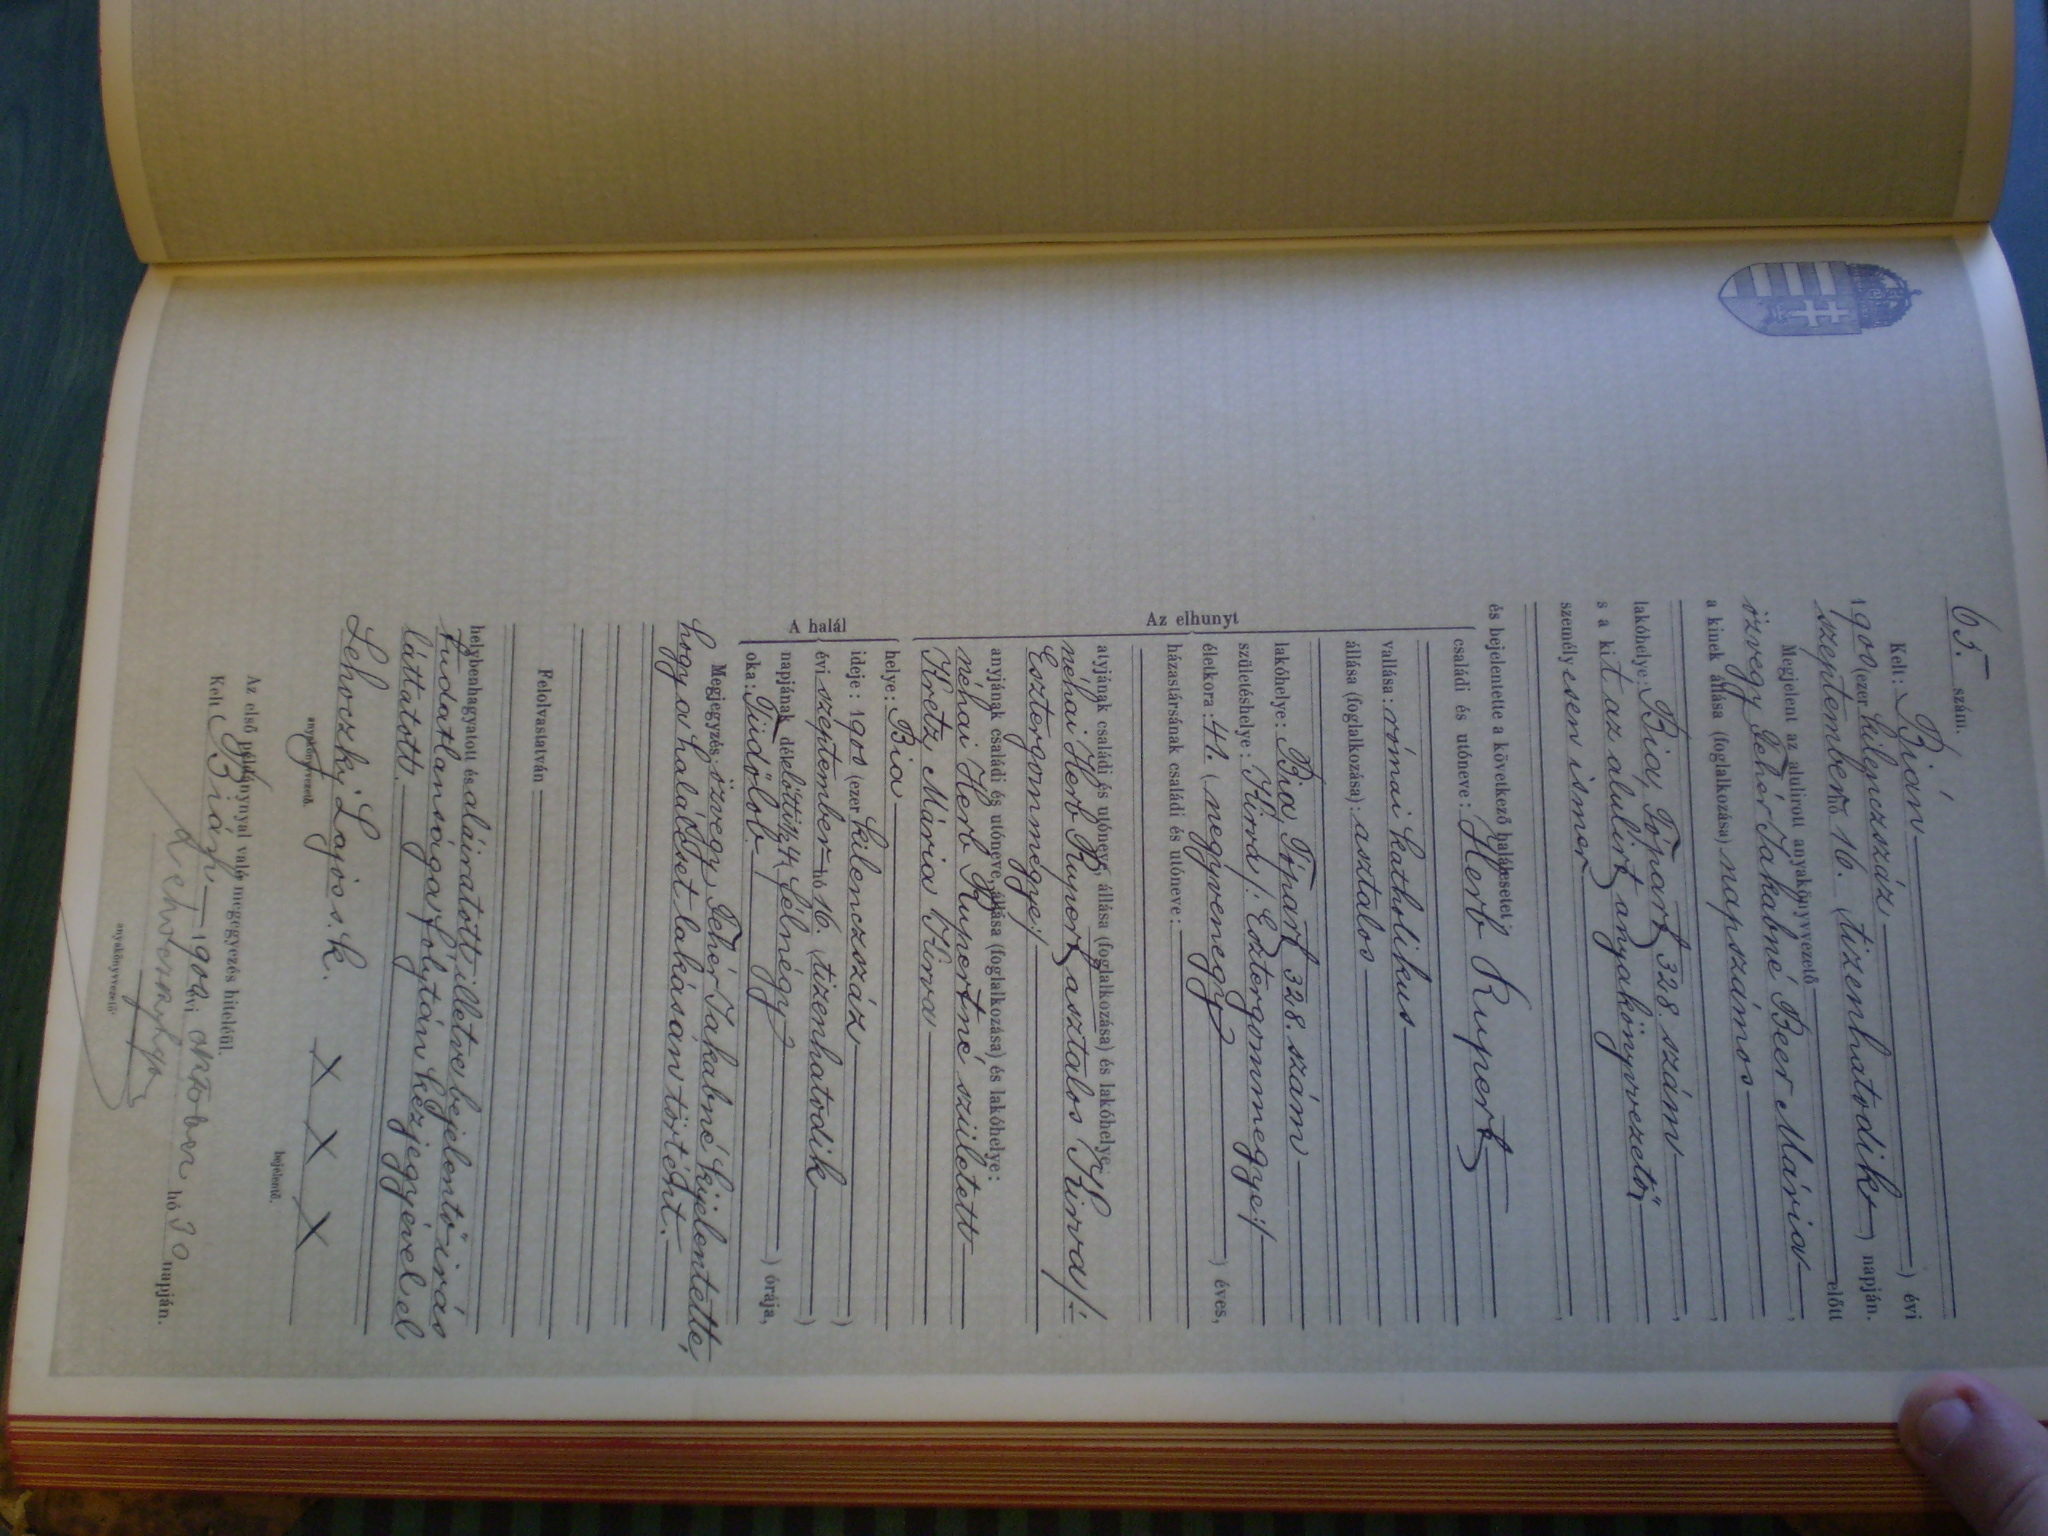 65. szám.
Kelt: Bián, 1900 (ezer kilenczszáz ) évi
szeptember hó 16. (tizenhatodik ) napján.
Megjelent az alulirott anyakönyvvezető előtt
özvegy Fehér Jakabné Beer Mária,
a kinek állása (foglalkozása) napszámos,
lakóhelye: Bia, Tópart 328. szám,
s a kit az alulirt anyakönyvvezető
személyesen ismer,
és bejelentette a következő halálesetet:
családi és utóneve: Herb Rupert
vallása: római katholikus
állása (foglalkozása): asztalos
lakóhelye: Bia, Tópart 328. szám
születéshelye: Kirva /: Esztergommegye :/
életkora: 41. ( negyvenegy ) éves,
házastársának családi és utóneve:
Az elhunyt
atyjának családi és utóneve, állása (foglalkozása) és lakóhelye:
néhai Herb Rupert, asztalos Kirva /:
Esztergommegye :/
anyjának családi és utóneve, állása (foglalkozása) és lakóhelye:
néhai Herb Rupertné született
Kretz Mária Kirva
A halál
helye: Bia
ideje: 1900 (ezer kilenczszáz )
évi szeptember hó 16. (tizenhatodik )
napjának délelőtti 1/2 4 (félnégy ) órája,
oka: Tüdőlob.
Megjegyzés: özvegy Fehér Jakabné kijelentette,
hogy a haláleset lakásán történt.
Felolvastatván
helybenhagyatott és aláiratott, illetve bejelentő irás
tudatlansága folytán kézjegyével el
láttatott.
Lehoczki Lajos s. k. X X X
anyakönyvvezető. bejelentő.
Az első példánynyal való megegyezés hiteléül.
Kelt Bián, 1900 évi oktober hó 30 napján.
anyakönyvvezető.